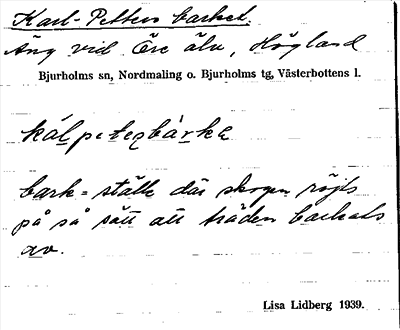 Karl-Petters barket.
Äng vid Öre älv, Högland
Bjurholms sn, Nordmaling o. Bjurholms tg, Västerbottens l.
kál peteṛbàrkе
bark = ställe där skogen röjts
på så sätt att träden barkats
av.
Lisa Lidberg 1939.